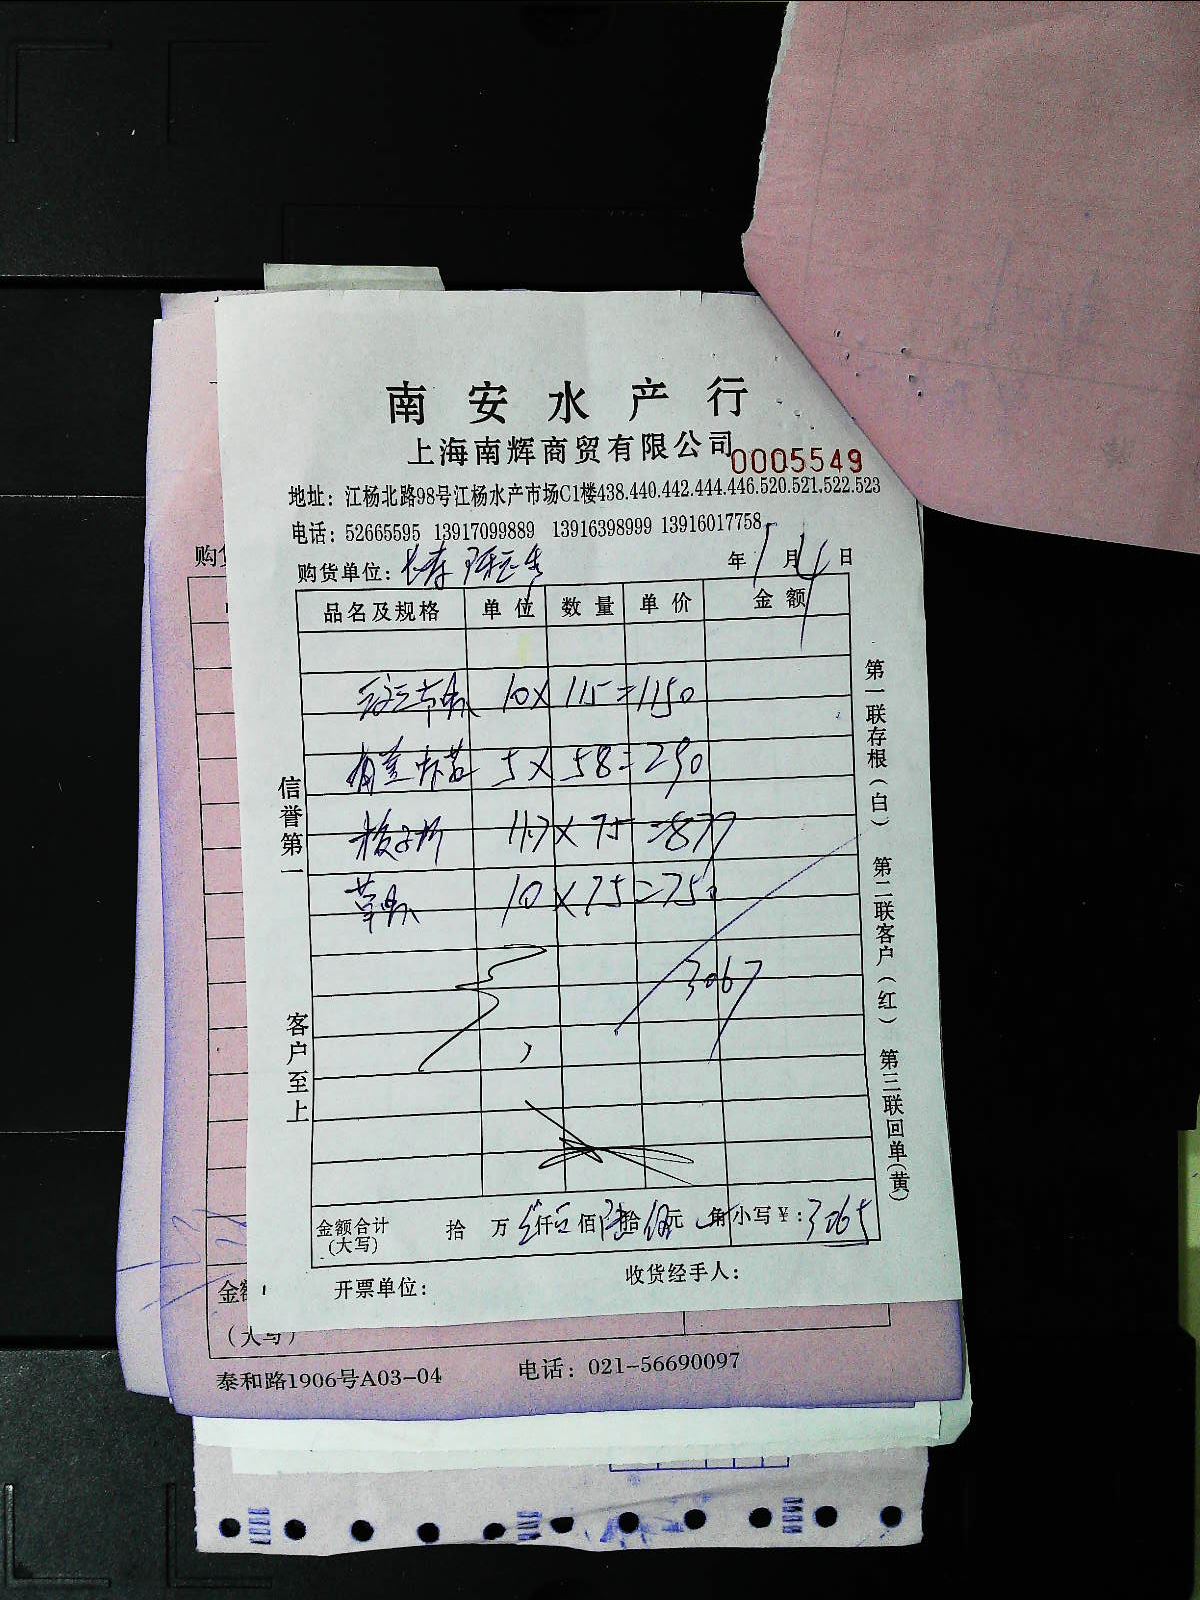 南安水产行
上海南辉商贸有限公司 0005549
地址：江杨北路98号江杨水产市场C1楼438.440.442.444.446.520.521.522.523
电话：52665595 13917099889 13916398999 13916017758
购货单位： 年 1 月 4 日
品名及规格 单位 数量 单价 金额
10 X 115 = 1150
5 X 58 = 290
11.7 X 75 = 877
草虾 10 X 75 = 750
3067
金额合计 拾 万 叁仟 佰 陆拾 伍元 角 小写￥：3065
(大写)
开票单位： 收货经手人：
信誉第一
客户至上
第一联存根（白） 第二联客户（红） 第三联回单(黄)
购
金
（大写）
泰和路1906号A03-04 电话：021-56690097